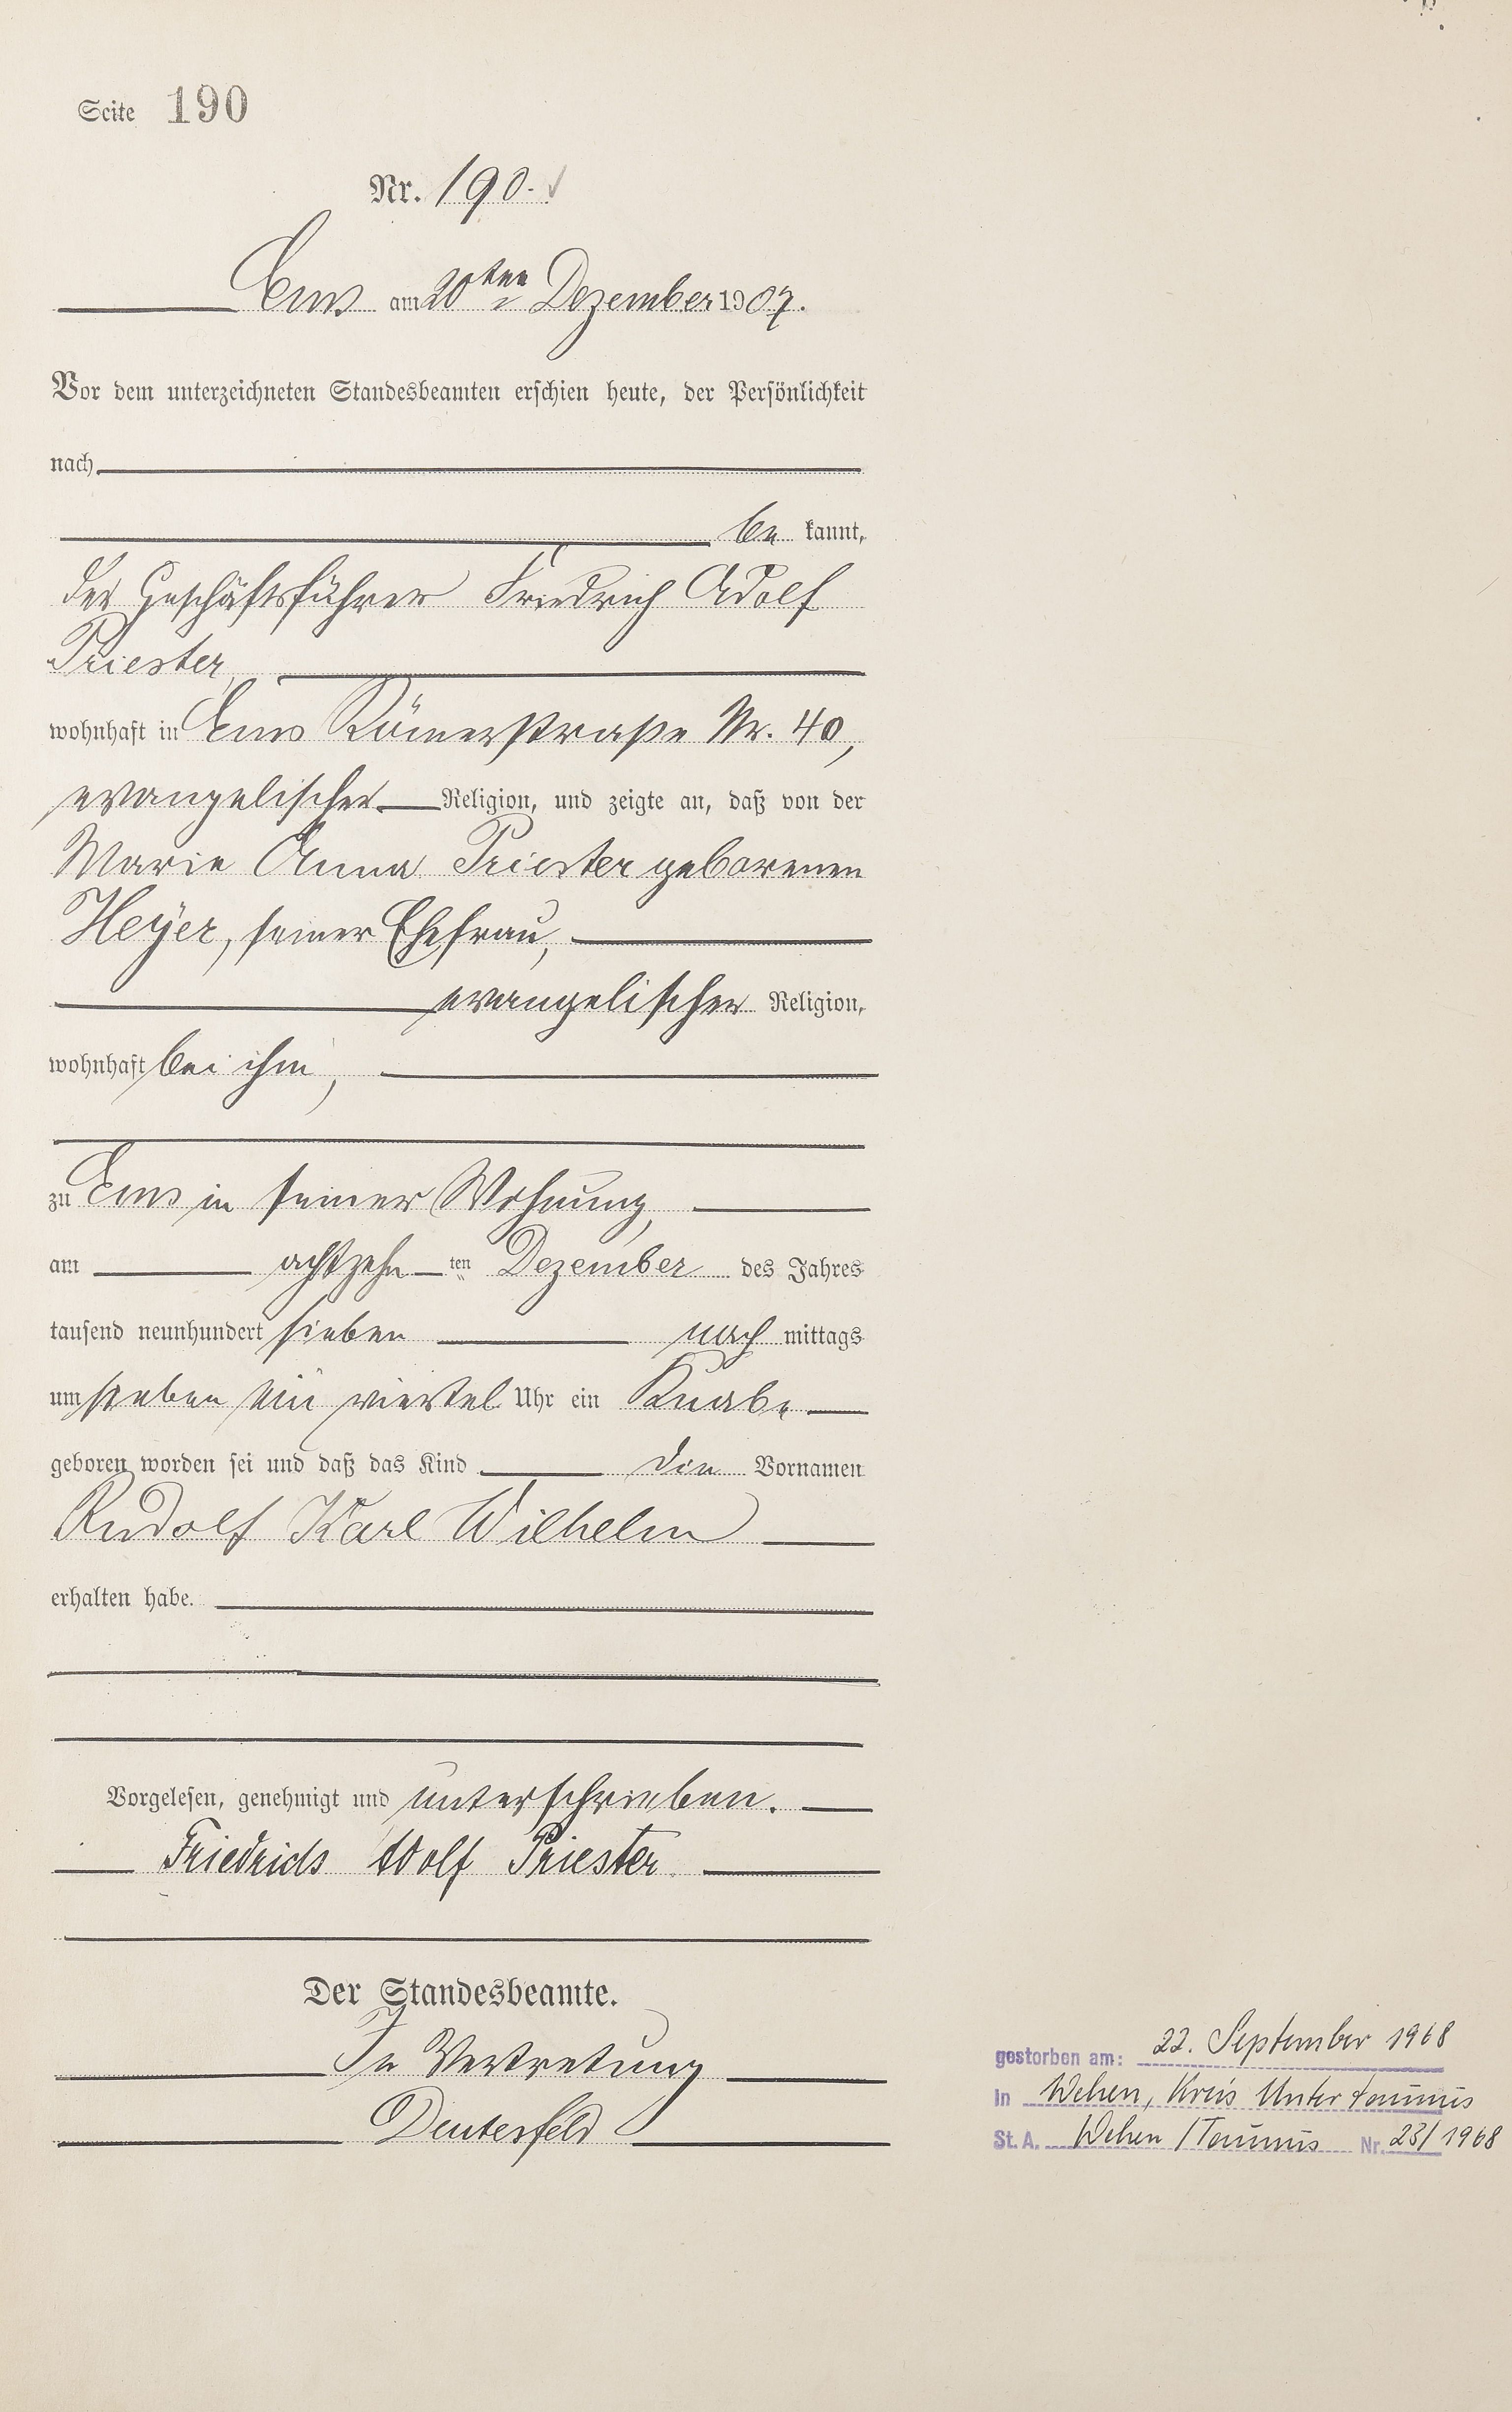 Seite 190
Nr. 190.
Ems am 20ten Dezember 1907.
Vor dem unterzeichneten Standesbeamten erschien heute, der Persönlichkeit
nach
be kannt,
der Geschäftsführer Friedrich Adolf
Priester,
wohnhaft in Ems Römerstraße Nr. 40,
evangelischer Religion, und zeigte an, daß von der
Marie Anna Priester geborenen
Heyer, seiner Ehefrau,
evangelischer Religion,
wohnhaft bei ihm,
zu Ems in seiner Wohnung,
am achtzehn ten Dezember des Jahres
tausend neunhundert sieben nach mittags
um sieben ein viertel Uhr ein Knabe
geboren worden sei und daß das Kind die Vornamen
Rudolf Karl Wilhelm
erhalten habe.
Vorgelesen, genehmigt und unterschrieben.
Friedrich Adolf Priester
Der Standesbeamte.
In Vertretung
gestorben am: 22. September 1968
in Wehen, Kreis Untertaunus
St. A. Wehen /Taunus Nr. 23/1968